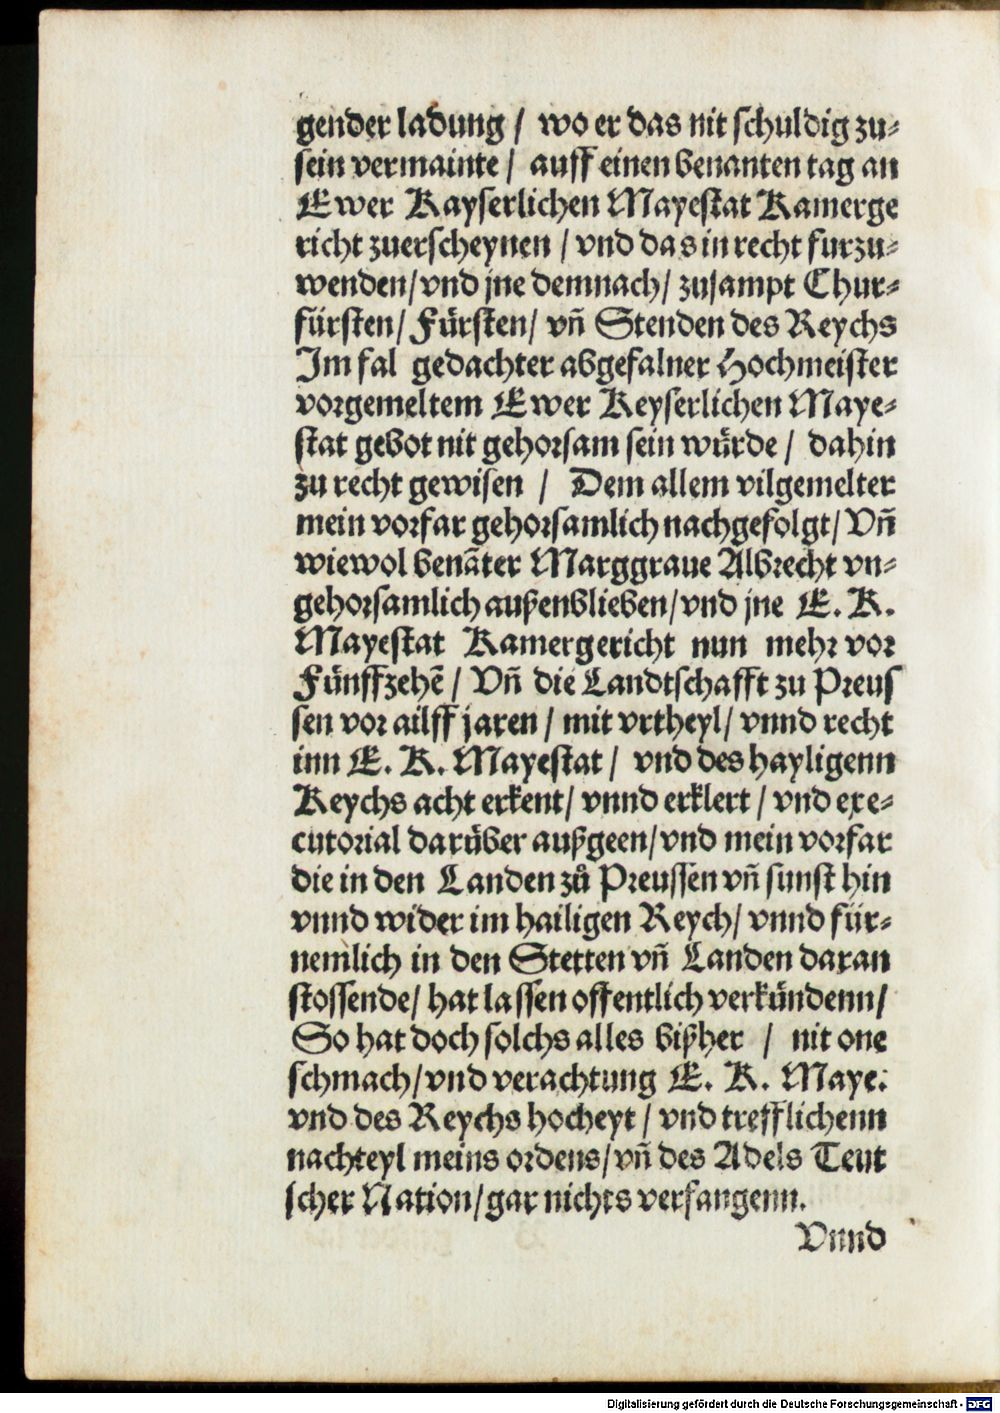 gender ladung / wo er das nit schuldig zu⸗
sein vermainte / auff einen benanten tag an
Ewer Kayserlichen Mayestat Kamerge
richt zuerscheynen / vnd das in recht furzu⸗
wenden/vnd jne demnach/ zusampt Chur⸗
fürsten/ Fürsten/ vñ Stenden des Reychs
Im fal gedachter abgefalner Hochmeister
vorgemeltem Ewer Keyserlichen Maye⸗
stat gebot nit gehorsam sein würde / dahin
zu recht gewisen / Dem allem vilgemelter
mein vorfar gehorsamlich nachgefolgt/ Vñ
wiewol benãter Marggraue Albrecht vn⸗
gehorsamlich außenblieben/vnd jne E. K.
Mayestat Kamergericht nun mehr vor
Fünffzehẽ / Vñ die Landtschafft zu Preus
sen vor ailff jaren / mit vrtheyl/ vnnd recht
inn E. K. Mayestat / vnd des hayligenn
Reychs acht erkent/ vnnd erklert / vnd exe⸗
cutorial darüber außgeen/vnd mein vorfar
die in den Landen zů Preussen vñ sunst hin
vnnd wider im hailigen Reych/ vnnd für⸗
nemlich in den Stetten vñ Landen daran
stossende/ hat lassen offentlich verkündenn/
So hat doch solchs alles bißher / nit one
schmach/vnd verachtung E. K. Maye.
vnd des Reychs hocheyt / vnd trefflichenn
nachteyl meins ordens/vñ des Adels Teut
scher Nation/gar nichts verfangenn.
Vnnd
Digitalisierung gefördert durch die Deutsche Forschungsgemeinschaft - DFG